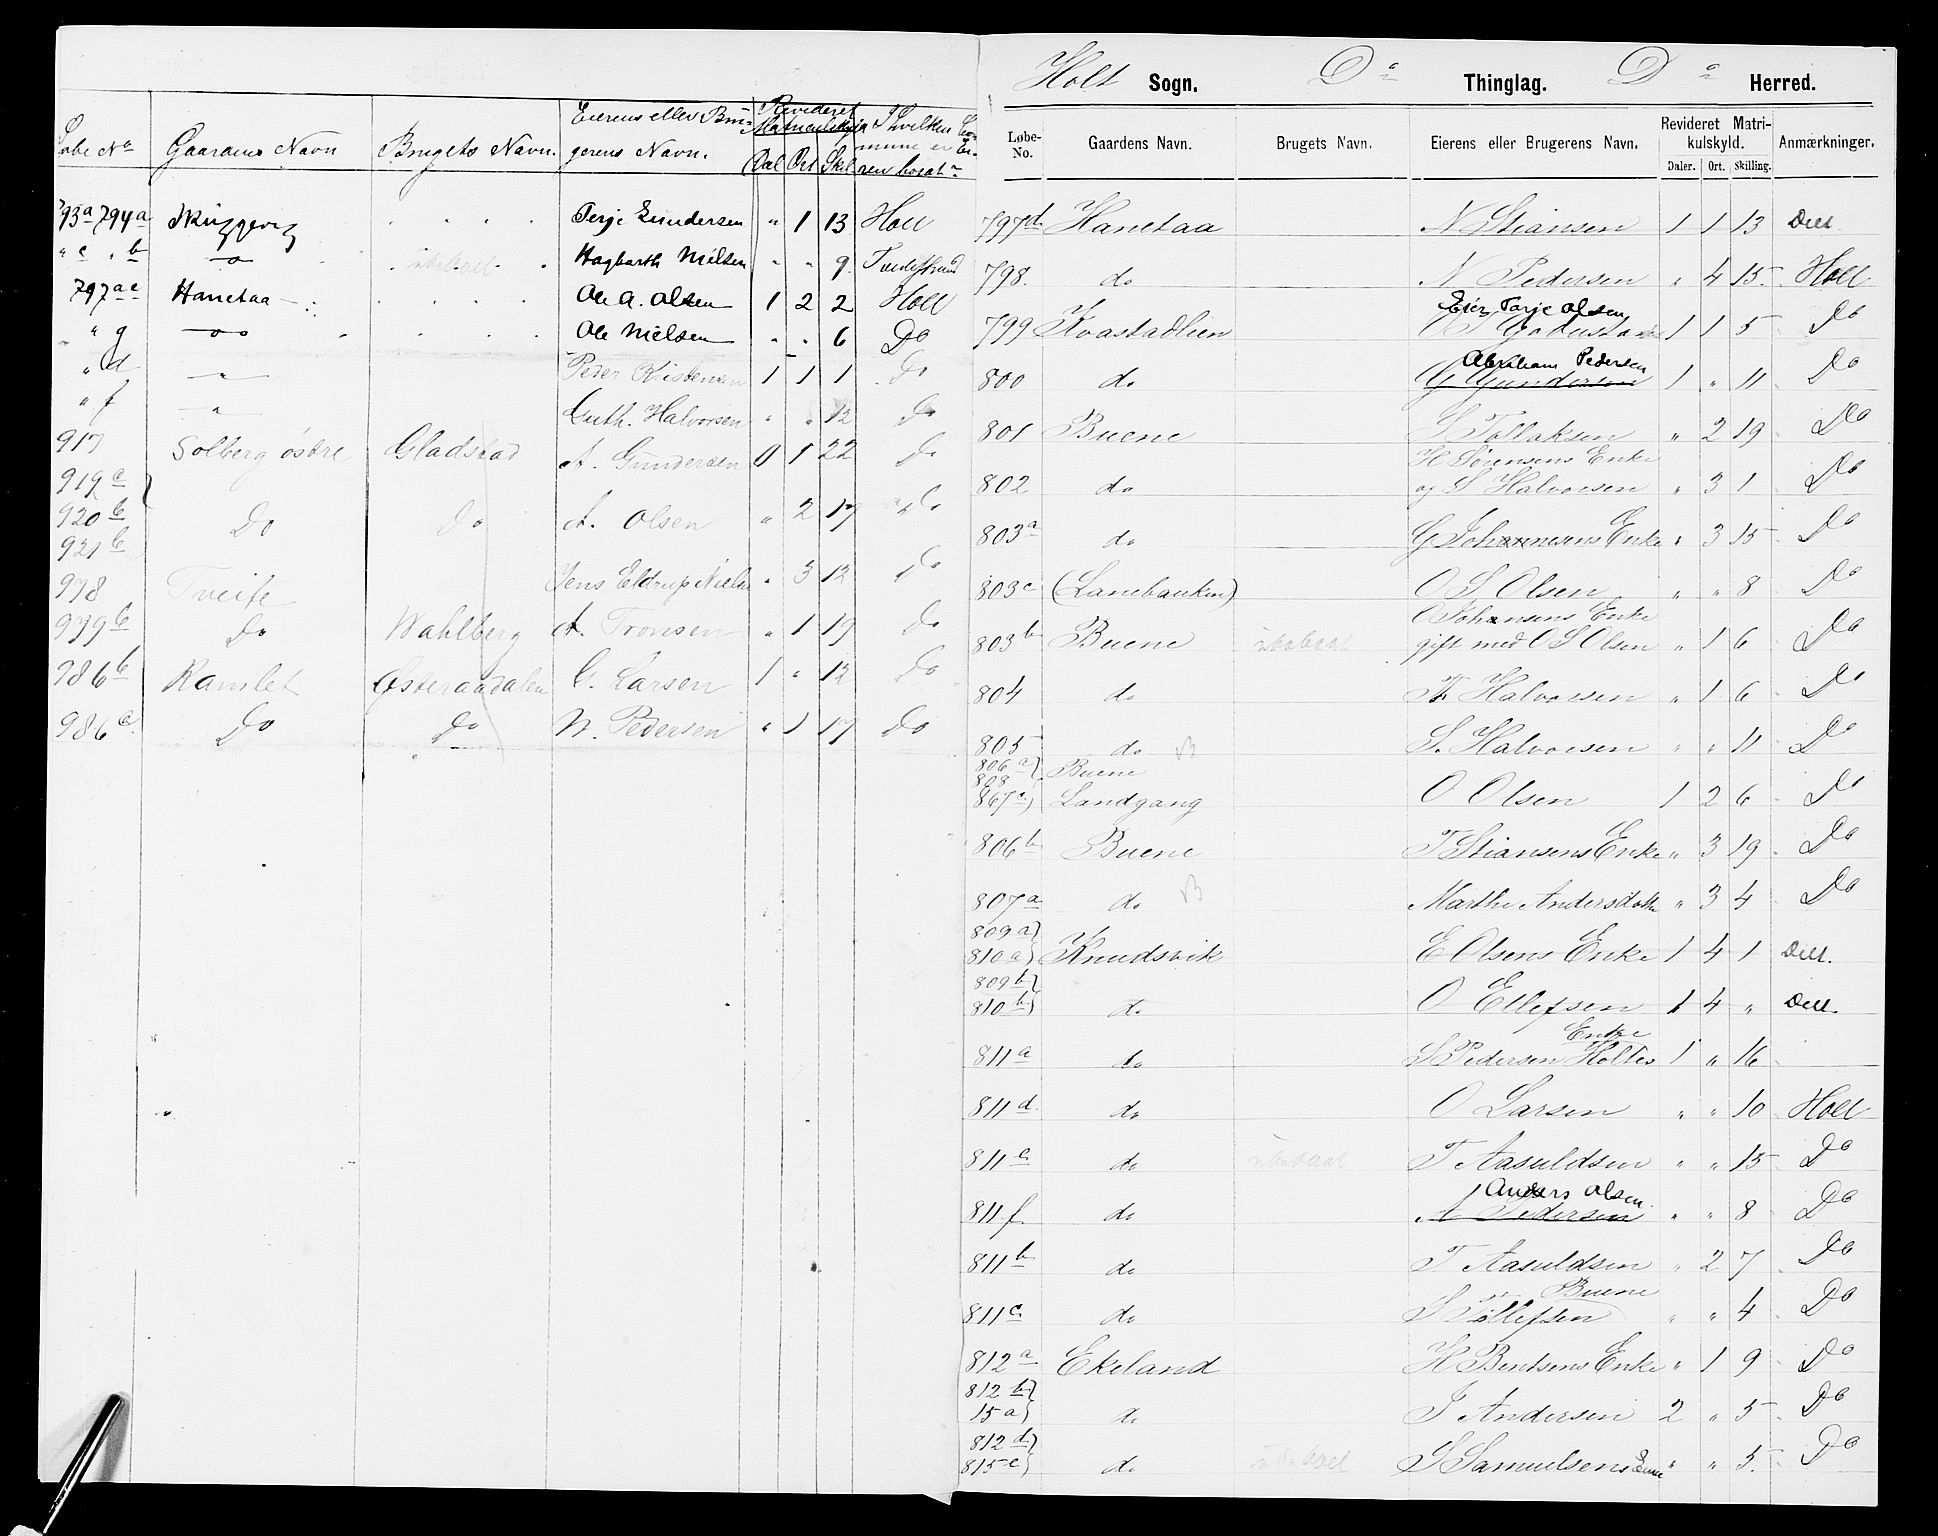 Løbe No Gaardens Navn Brugets Navn. Eierens eller Bru-
gerens Navn. Revideret Matriculskyld Dal Ort Skil I hvilken Co-
mune er Ei-
eren bosat
793a 794a Skuggevig Terje Gundersen " 1 13 Holt
" c " b do Hagbarth Nielsen " " 9 Tvedestrand
797 ae Hanetaa Ole A. Olsen 1 2 2 Holt
" g do Ole Nielsen " " 6 Do
" d " Peder Kristensen 1 1 1 Do
" f " Guth. Halvorsen " " 12 Do
917 Solberg östre Gladstad A. Gundersen 0 1 22 Do
919 c
920 b Do Do A. Olsen " 2 17 Do
921 b
978 Tveite Jens Eldrup Nielsen " 3 12 Do
979 b Do Wahlberg A. Tronsen " 1 19 Do
986 b Ramlet Østeraadalen G. Larsen 1 " 12 Do
986 a Do Do N. Pedersen " 1 17 Do
Holt Sogn. Do Thinglag. Do Herred.
Løbe-No. Gaardens Navn. Brugets Navn. Eierens eller Brugerens Navn. Revideret Matrikulskyld. Daler. Ort. Skilling. Anmærkninger.
797 d Hanetaa N Stiansen 1 1 13 Delt.
798. do N Pedersen " 4 15 Holt
Eier Terje Olsen
799 Kvastadlien 1 1 5 Do
Abraham Pedersen
800 do G Gundersen 1 " 11 Do
801 Buene S Tollaksen " 2 19 Do
H Sørensens Enke
802 do og S Halvorsen " 3 1 Do
803 a do G Johannesens Enke " 3 15 Do
803 c (Lanebakken) O S Olsen " " 8 Do
O Johansens Enke
803 b Buene ubeboet gift med O S Olsen " 1 6 Do
804 do Th Halvorsen " 1 6 Do
805 do B S. Halvorsen " " 11 Do
806 a Buene
808
867 a Landgang O Olsen 1 2 6 Do
806 b Buene T Stiansens Enke " 3 19 Do
807 a do B Marthe Andersdatter " 3 4 Do
809 a
810 a Knudsvik E Olsens Enke 1 4 1 Delt.
809 b
810 b do O Ellefsen 1 4 " Delt.
Enke
811 a do S Pedersen Holtes 1 " 16
811 d do O Larsen " " 10 Holt
811 e do ubeboet T Aasuldsen " " 15 Do
Anders Olsen
811 f do A Pedersen " " 8 Do
811 b do T Aasuldsen " 2 7 Do
Buene
811 c do S Tollefsen " " 4 Do
812 a Ekeland H Bentsens Enke " 1 9 Do
812 b
15 a do J Andersen 2 " 5 Do
812 d
815 c do ubeboet S Samuelsens Enke " " 5 Do